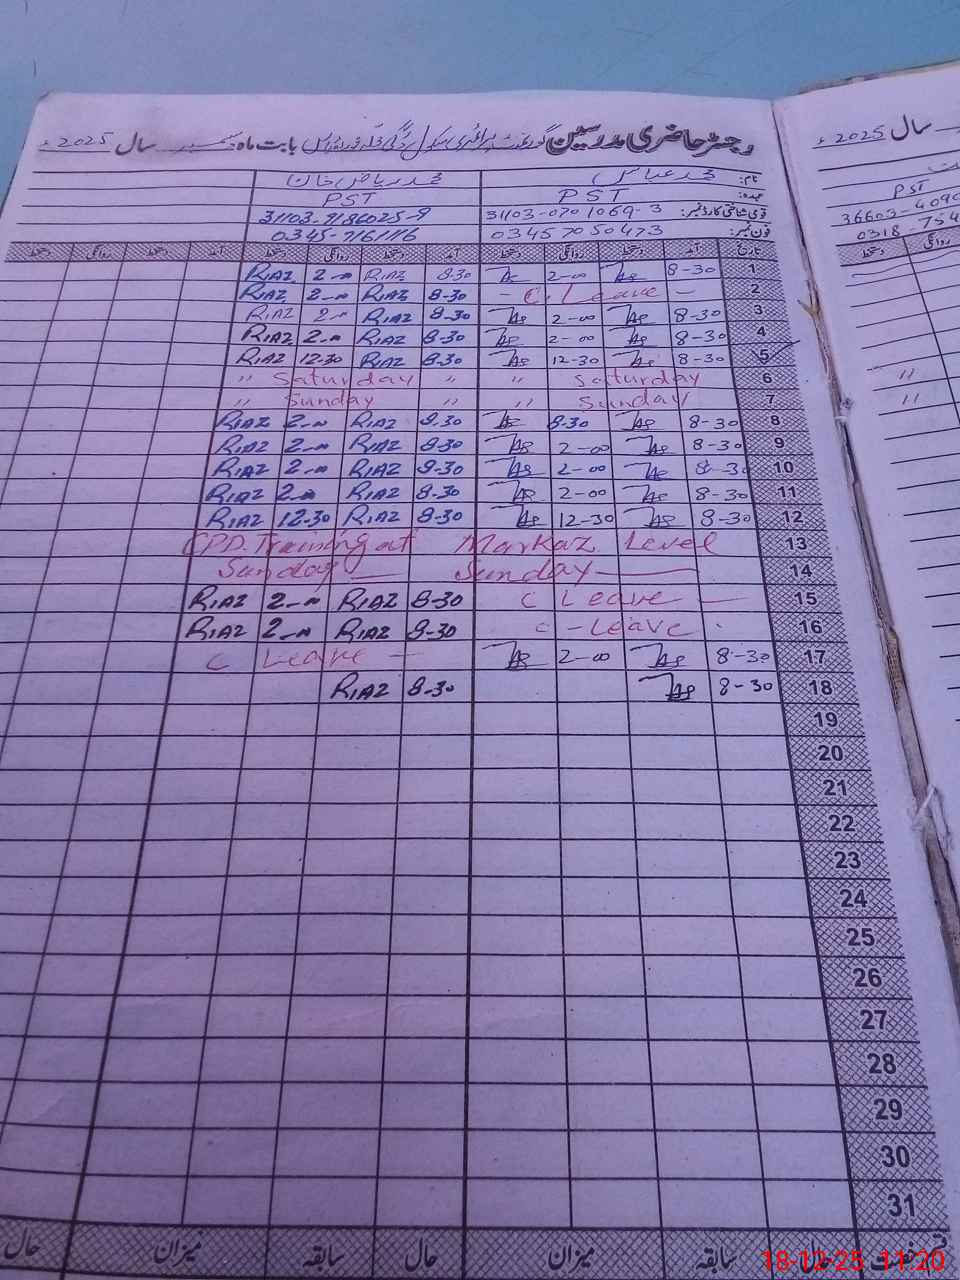 رجسٹر حاضری مدرسین گورنمنٹ پرائمری سکول بابت ماہ دسمبر سال 2025ء
نام: محمد عباس محمد ریاض خان
عہدہ: PST PST
قومی شناختی کارڈ نمبر: 31103-0701069-3 31103-9186025-9
فون نمبر: 03457050473 0345-7161116
تاریخ آمد دستخط روانگی دستخط آمد دستخط روانگی دستخط آمد دستخط روانگی دستخط
1 8-30 2-00 8-30 RIAZ 2-00 RIAZ
2 - C. Leave - 8-30 RIAZ 2-00 RIAZ
3 8-30 2-00 8-30 RIAZ 2-00 RIAZ
4 8-30 2-00 8-30 RIAZ 2-00 RIAZ
5 8-30 12-30 8-30 RIAZ 12-30 RIAZ
6 " Saturday " Saturday "
7 " Sunday " Sunday "
8 8-30 8-30 8-30 RIAZ 2-00 RIAZ
9 8-30 2-00 8-30 RIAZ 2-00 RIAZ
10 8-30 2-00 8-30 RIAZ 2-00 RIAZ
11 8-30 2-00 8-30 RIAZ 2-00 RIAZ
12 8-30 12-30 8-30 RIAZ 12-30 RIAZ
13 CPD. Training at Markaz Level
14 Sunday — Sunday —
15 C Leave — 8-30 RIAZ 2-00 RIAZ
16 C - Leave 8-30 RIAZ 2-00 RIAZ
17 8-30 2-00 C Leave —
18 8-30 8-30 RIAZ
19
20
21
22
23
24
25
26
27
28
29
30
31
حال سابقہ میزان حال سابقہ میزان حال
سال 2025ء
PST
36603-4090
0318-754
روانگی دستخط
"
"
18-12-25 11:20